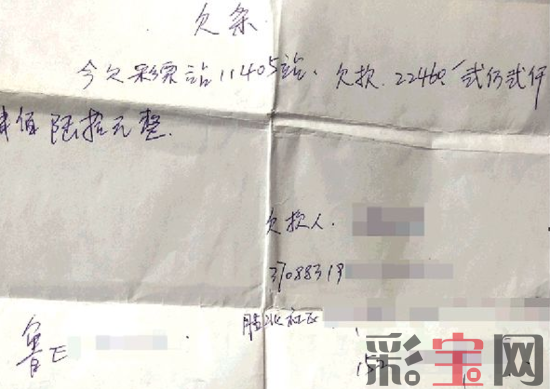 欠条
今欠彩票站11405站、欠款.22460.贰仟贰仟
肆佰陆拾元整.
欠款人.
3708831
社区
鲁E
152
彩宝网